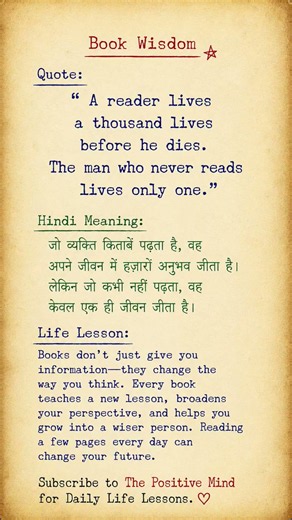 Book Wisdom
Quote:
“ A reader lives
a thousand lives
before he dies.
The man who never reads
lives only one.”
Hindi Meaning:
जो व्यक्ति किताबें पढ़ता है, वह
अपने जीवन में हज़ारों अनुभव जीता है।
लेकिन जो कभी नहीं पढ़ता, वह
केवल एक ही जीवन जीता है।
Life Lesson:
Books don’t just give you
information—they change the
way you think. Every book
teaches a new lesson, broadens
your perspective, and helps you
grow into a wiser person. Reading
a few pages every day can
change your future.
Subscribe to The Positive Mind
for Daily Life Lessons. ♡